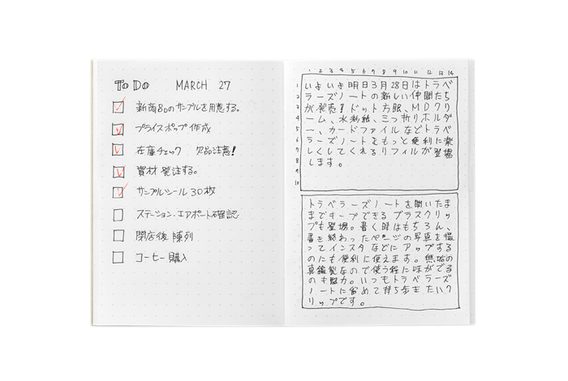 To Do MARCH 27
新商品のサンプルを用意する。
プライスポップ作成
在庫チェック 欠品注意!
資材発注する。
サンプルシール30枚
ステーションエアポート確認
閉店後 陳列
コーヒー購入
1 2 3 4 5 6 7 8 9 10 11 12 13 14
1
2
3
4
5
6
7
8
9
10
いよいよ明日3月28日はトラベ
ラーズノートの新しい仲間たち
が発売!ドット方眼、MDクリ
ーム、水彩紙、三つ折りホルダ
ー、カードファイルなどトラベ
ラーズノートをもっと便利に楽
しくしてくれるリフィルが登場
します。
トラベラーズノートを開いたま
まキープできるブラスクリッ
プも登場。書く時はもちろん、
書き終わったページの写真を撮
ってインスタなどにアップする
のにも便利に使えます。無垢の
真鍮製なので使う程に味がでる
のも魅力。いつもトラベラーズ
ノートに留めて持ち歩きたいク
リップです。